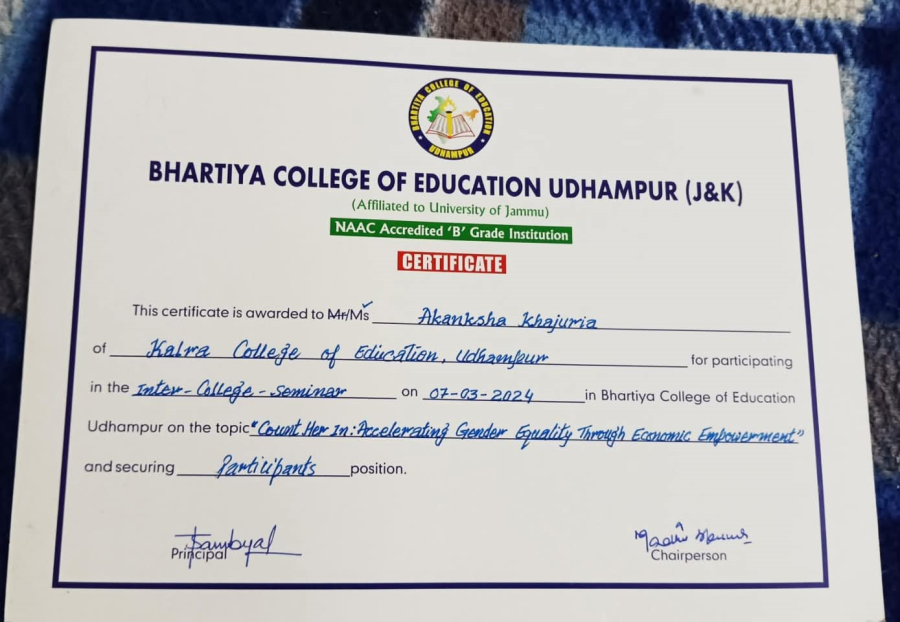 BHARTIYA COLLEGE OF EDUCATION
UDHAMPUR
BHARTIYA COLLEGE OF EDUCATION UDHAMPUR (J&K)
(Affiliated to University of Jammu)
NAAC Accredited 'B' Grade Institution
CERTIFICATE
This certificate is awarded to Mr/Ms Akanksha Khajuria
of Kalra College of Education, Udhampur for participating
in the Inter-College-Seminar on 07-03-2024 in Bhartiya College of Education
Udhampur on the topic "Count Her In: Accelerating Gender Equality Through Economic Empowerment"
and securing Participants position.
Sambyal
Principal
Chairperson